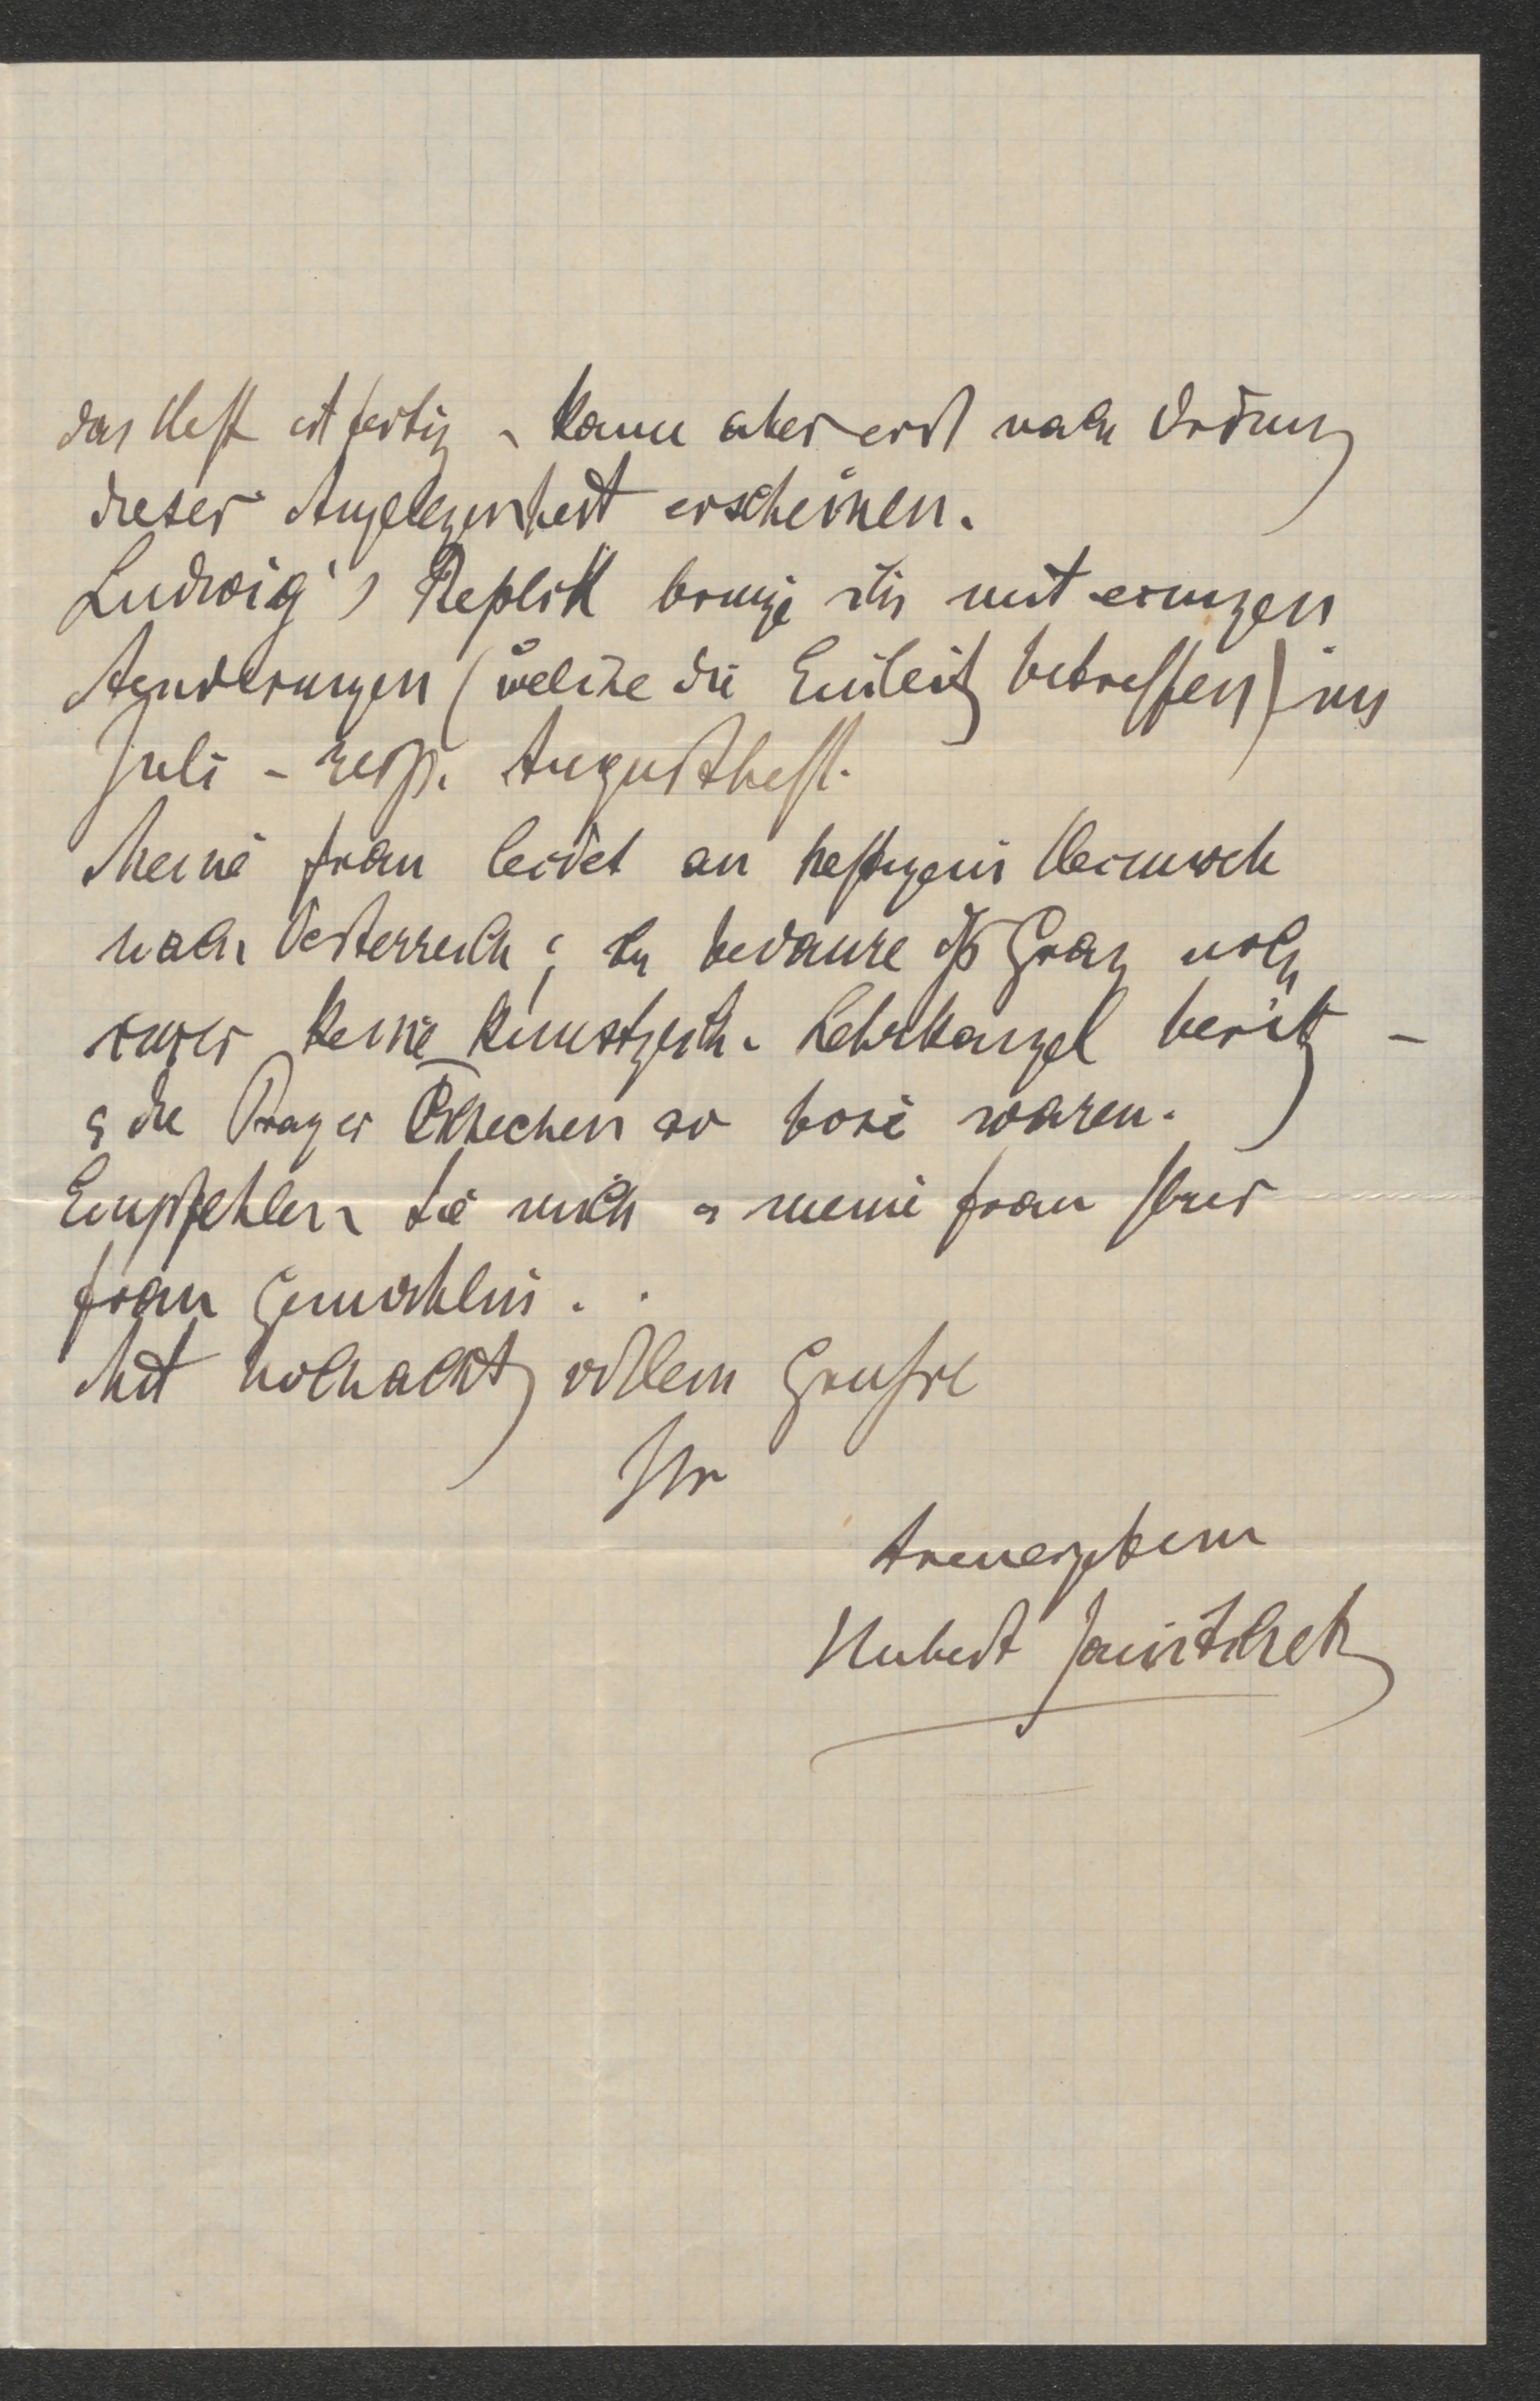 das Heft ist fertig – kann aber erst nach Ordnung
dieser Angelegenheit erscheinen.
Ludwig's Replik bringe ich mit einigen
Aenderungen (welche die Einleitg betreffen) im
Juli – resp. Augustheft.
Meine Frau leidet an heftigem Heimweh
nach Oesterreich; ich bedaure dß Graz noch
immer keine kunstgesch. Lehrkanzel besitzt –
u die Prager Czechen so böse waren.
Empfehlen Sie mich u meine Frau Ihrer
Frau Gemahlin.
Mit hochachtgvollem Gruße
Ihr
treuergebener
Hubert Janitschek